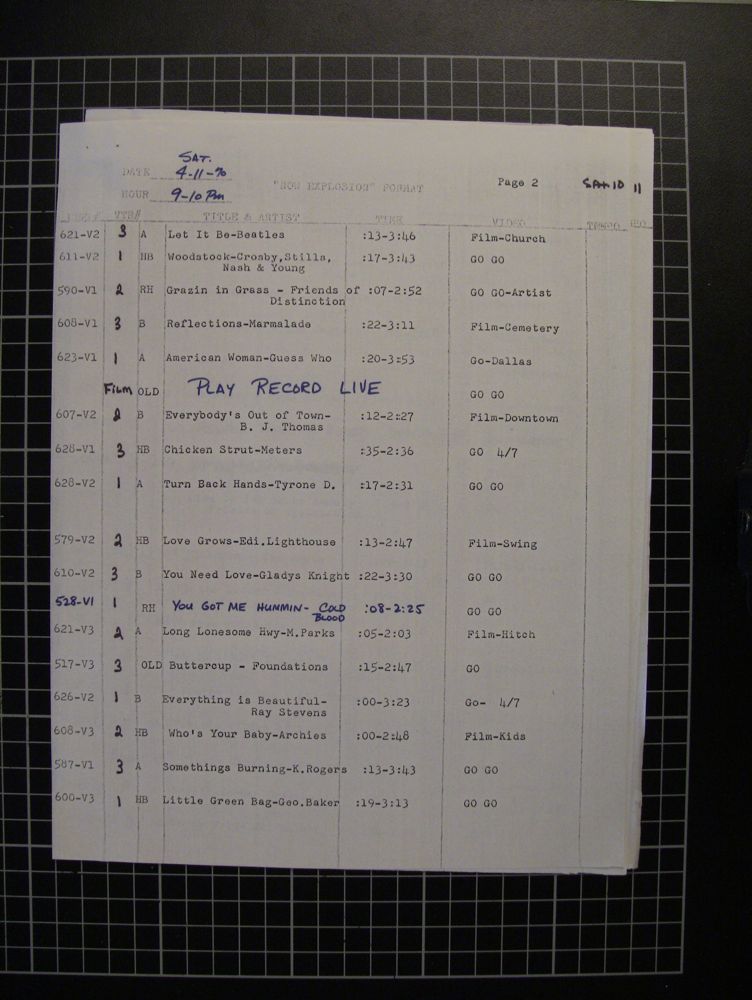 SAT.
DATE 4-11-70
HOUR 9-10 PM
"NOW EXPLOSION" FORMAT
Page 2
VTR# TITLE & ARTIST TIME VIDEO
621-V2 3 A Let It Be-Beatles :13-3:46 Film-Church
611-V2 1 HB Woodstock-Crosby,Stills, :17-3:43 GO GO
Nash & Young
590-V1 2 RH Grazin in Grass - Friends of :07-2:52 GO GO-Artist
Distinction
608-V1 3 B Reflections-Marmalade :22-3:11 Film-Cemetery
623-V1 1 A American Woman-Guess Who :20-3:53 Go-Dallas
FILM OLD PLAY RECORD LIVE GO GO
607-V2 2 B Everybody's Out of Town- :12-2:27 Film-Downtown
B. J. Thomas
628-V1 3 HB Chicken Strut-Meters :35-2:36 GO 4/7
628-V2 1 A Turn Back Hands-Tyrone D. :17-2:31 GO GO
579-V2 2 HB Love Grows-Edi.Lighthouse :13-2:47 Film-Swing
610-V2 3 B You Need Love-Gladys Knight :22-3:30 GO GO
528-V1 1 RH YOU GOT ME HUMMIN- COLD :08-2:25 GO GO
BLOOD
621-V3 2 A Long Lonesome Hwy-M.Parks :05-2:03 Film-Hitch
517-V3 3 OLD Buttercup - Foundations :15-2:47 GO
626-V2 1 B Everything is Beautiful- :00-3:23 Go- 4/7
Ray Stevens
608-V3 2 HB Who's Your Baby-Archies :00-2:48 Film-Kids
587-V1 3 A Somethings Burning-K.Rogers :13-3:43 GO GO
600-V3 1 HB Little Green Bag-Geo.Baker :19-3:13 GO GO